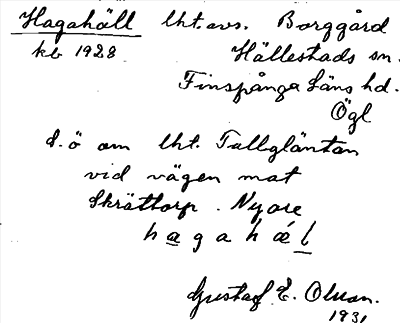 Hagahäll lht. avs. Borggård
kb 1928 Hällestads sn.
Finspånga läns hd.
Ögl.
S.ö om lht. Tallgläntan
vid vägen mot
Skrättorp. Nyare
hagahäl
Gustaf E. Olsson.
1931